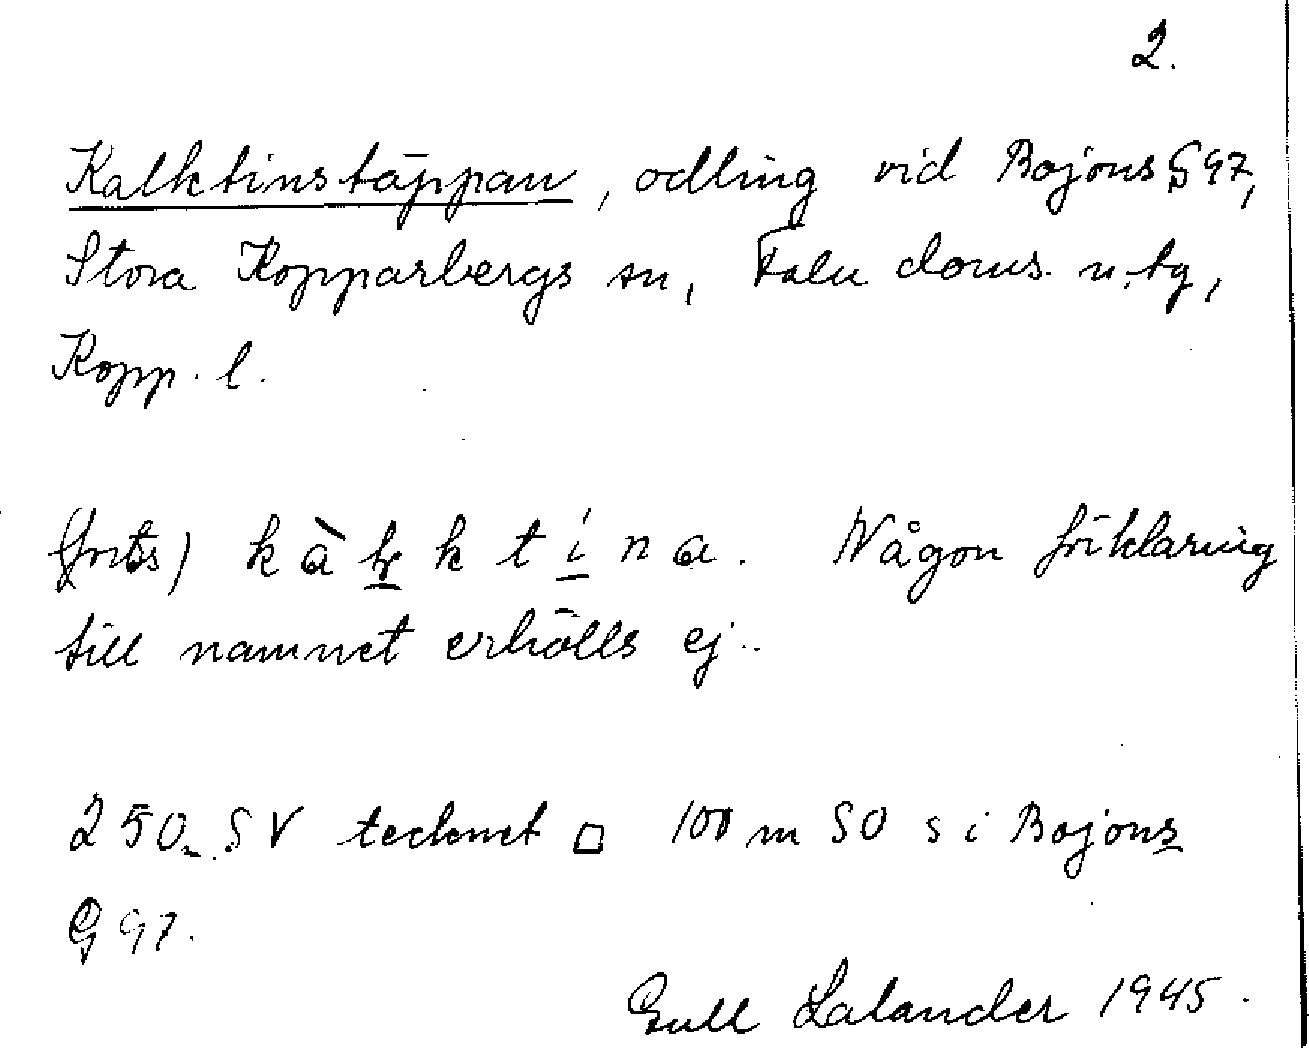 2.
Kalktinstäppan, odling vid Bojons G 97,
Stora Kopparbergs sn, Falu doms. n. tg,
Kopp. l.
(forts) k à l k t i n a. Någon förklaring
till namnet erhölls ej.
250 m SV tecknet □ 100 m SO s i Bojons
G 97.
Gull Lalander 1945.